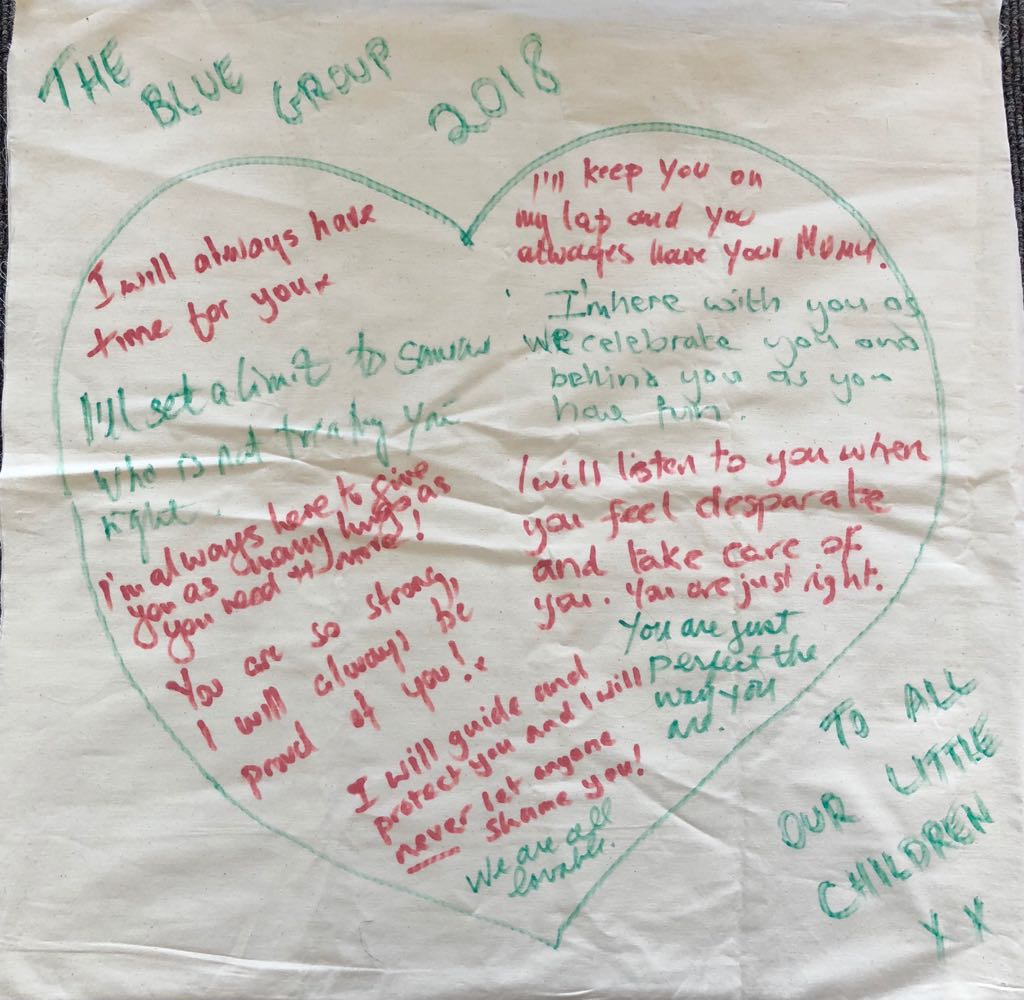 THE BLUE GROUP
2018
I will always have
time for you x
I'll set a limit to
who is not treating you
right.
I'm always here to give
you as many hugs as
you need + more!
You are so strong,
I will always be
proud of you! x
I will guide and
protect you and I will
never let anyone
shame you!
We are all
lovable.
I'll keep you on
my lap and you
always have your Mumy.
I'm here with you as
we celebrate you and
behind you as you
have fun.
I will listen to you when
you feel desparate
and take care of
you. You are just right.
You are just
perfect the
way you
are.
TO ALL
OUR LITTLE
CHILDREN
X X